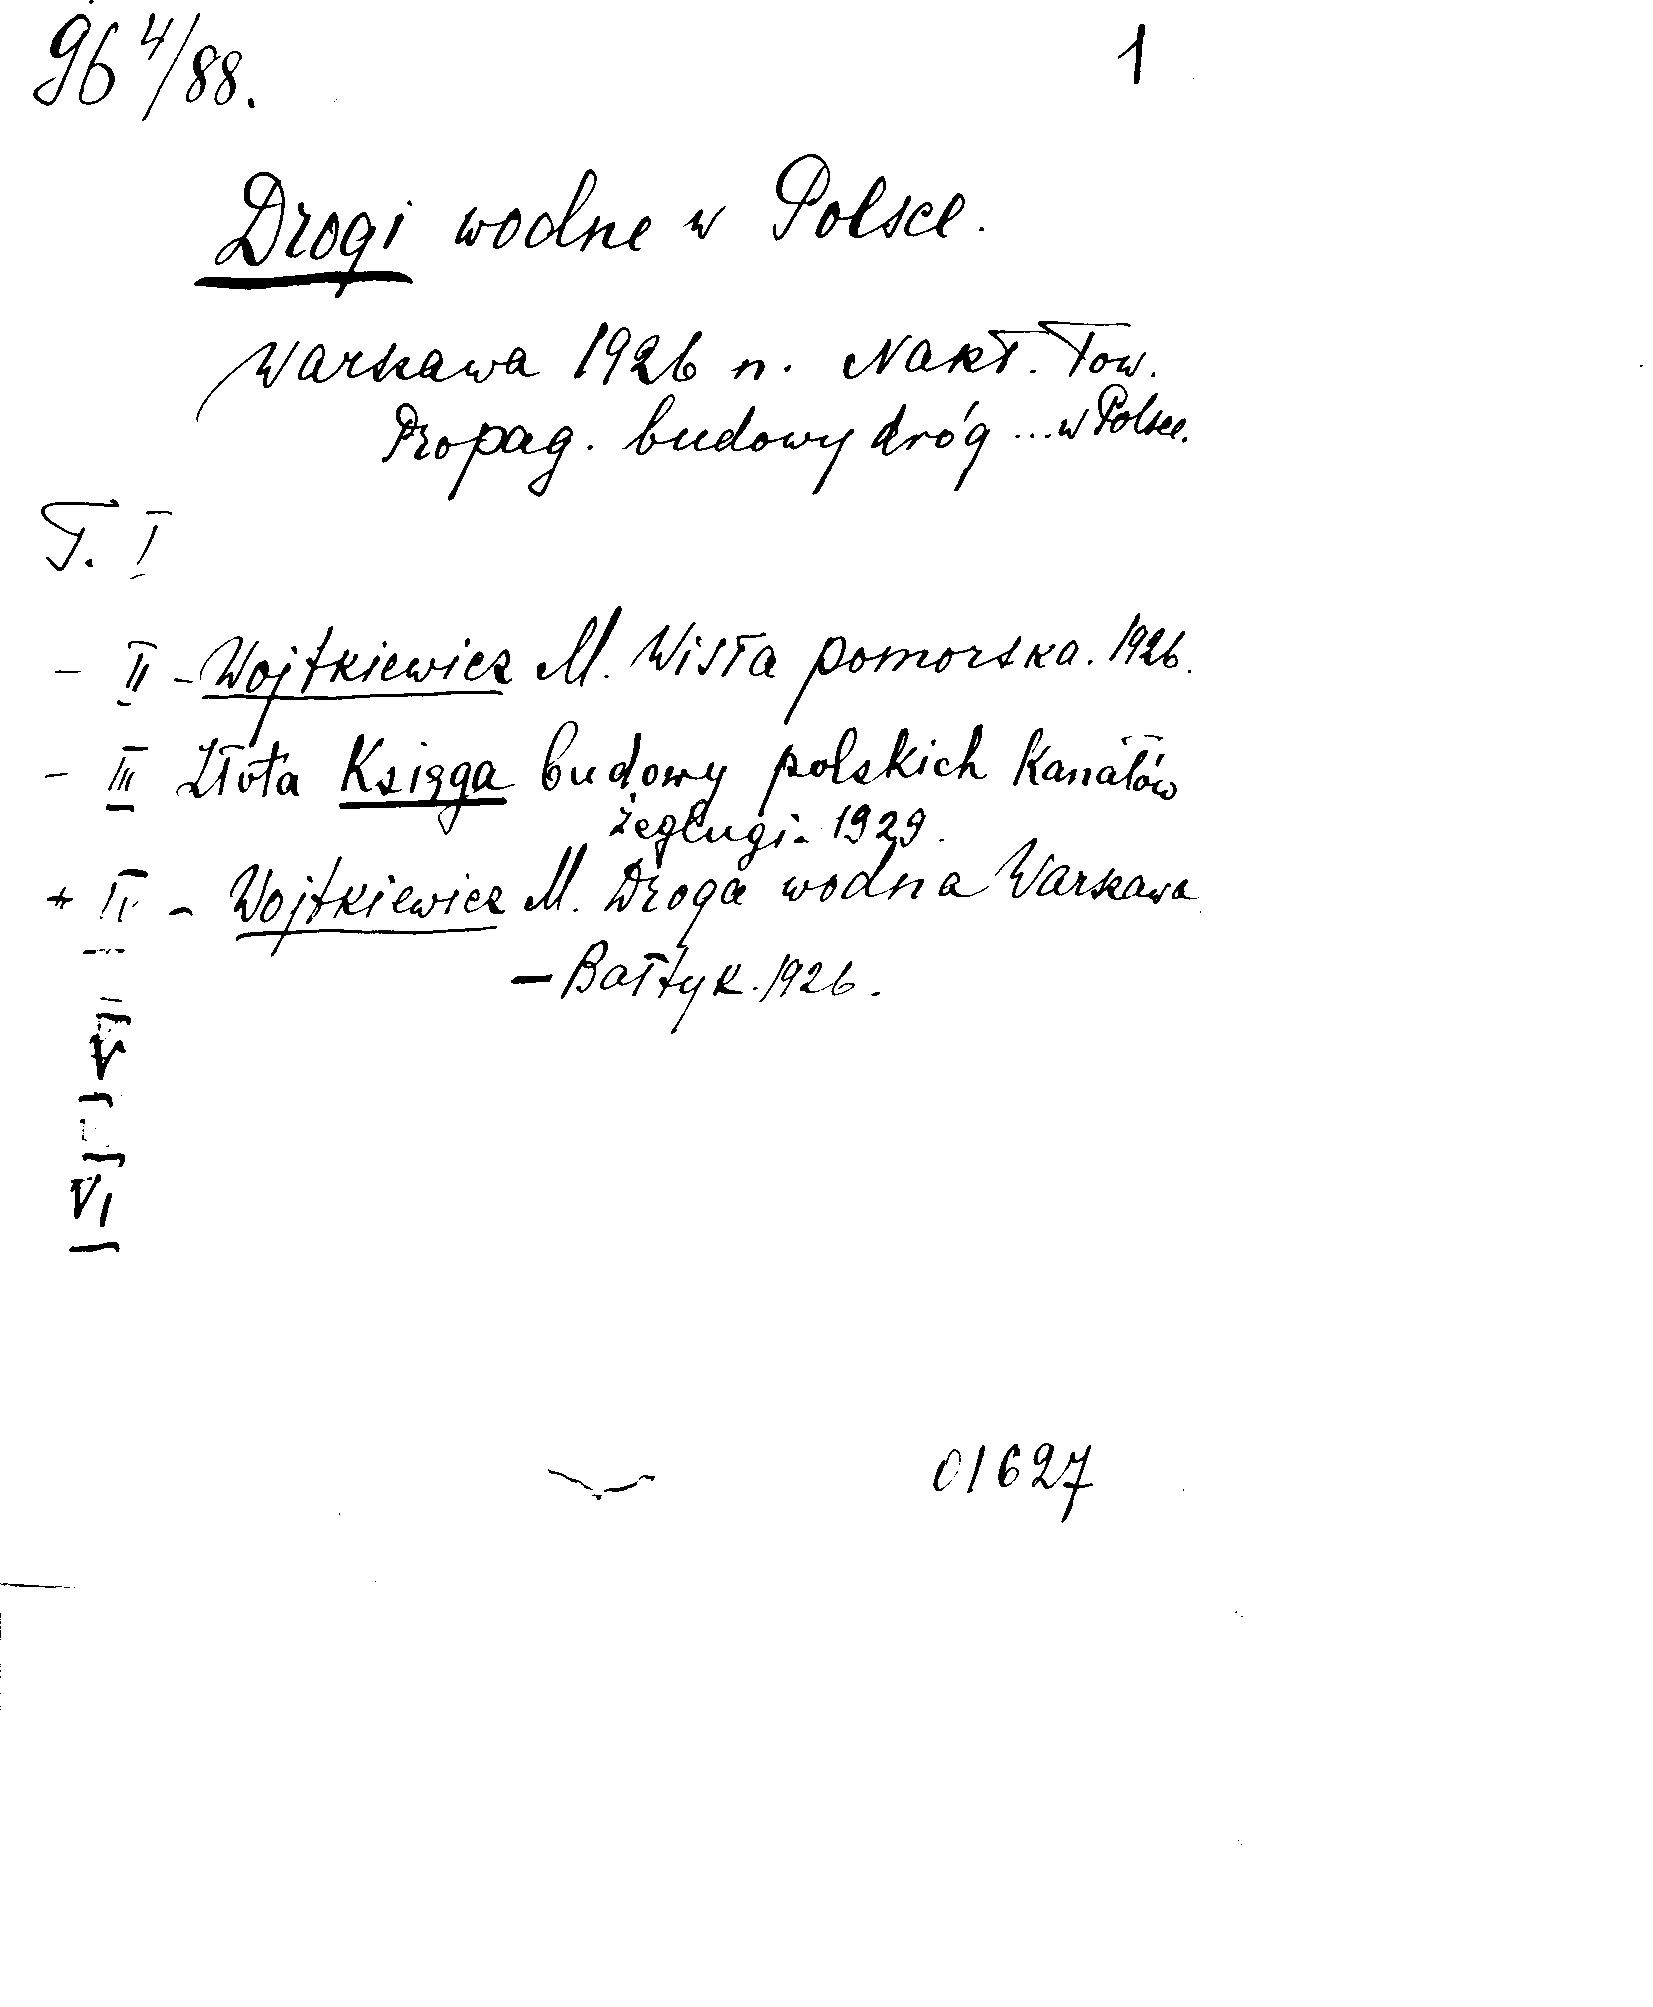 96 4/88. 1
Drogi wodne w Polsce.
Warszawa 1926 n. Nakł. Tow.
Propag. budowy dróg ... w Polsce.
T. I
- II - Wojtkiewicz M. Wisła pomorska. 1926.
- III Złota Księga budowy polskich Kanałów
żeglugi. 1929.
+ IV - Wojtkiewicz M. Droga wodna Warszawa
- Bałtyk. 1926.
V
VI
01627